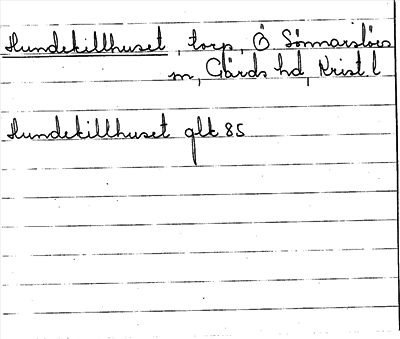 Hundekillhuset, torp, Ö Sönnarslövs
m, Gärds hd, Krist l
Hundekillhuset glk 85